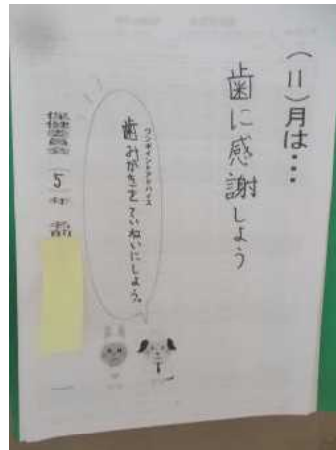 （11）月は…
歯に感謝しよう
ワンポイントアドバイス
歯みがきをていねいにしよう。
保健委員会（5）年 名前